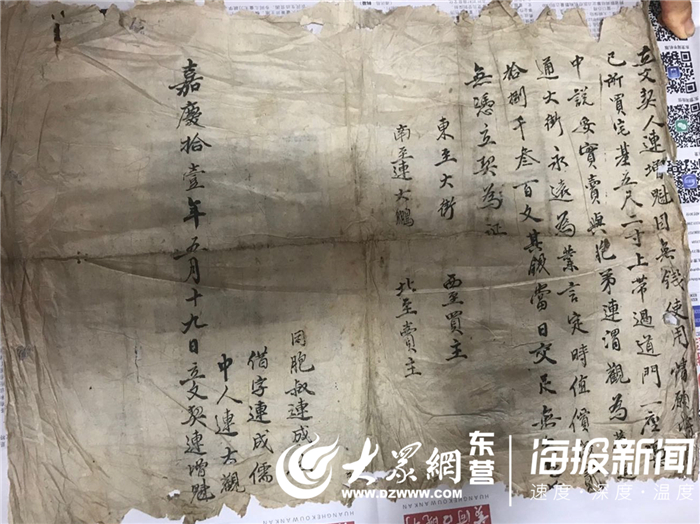 立文契人連增魁因無錢使用情願將
己所買宅基五尺二寸上帶過道門一座
中說妥實賣與胞弟連渭觀為業
通大街永遠為業言定時值價
拾捌千叁百文其錢當日交足無
無憑立契為証
東至大街 西至買主
南至連大鵬 北至賣主
同胞叔連成
借字連成儒
中人連大觀
嘉慶拾壹年五月十九日立文契連增魁
大眾網 东营
www.dzwww.com
海报新闻
速度·深度·温度
HUANGHEKOUWANKAN